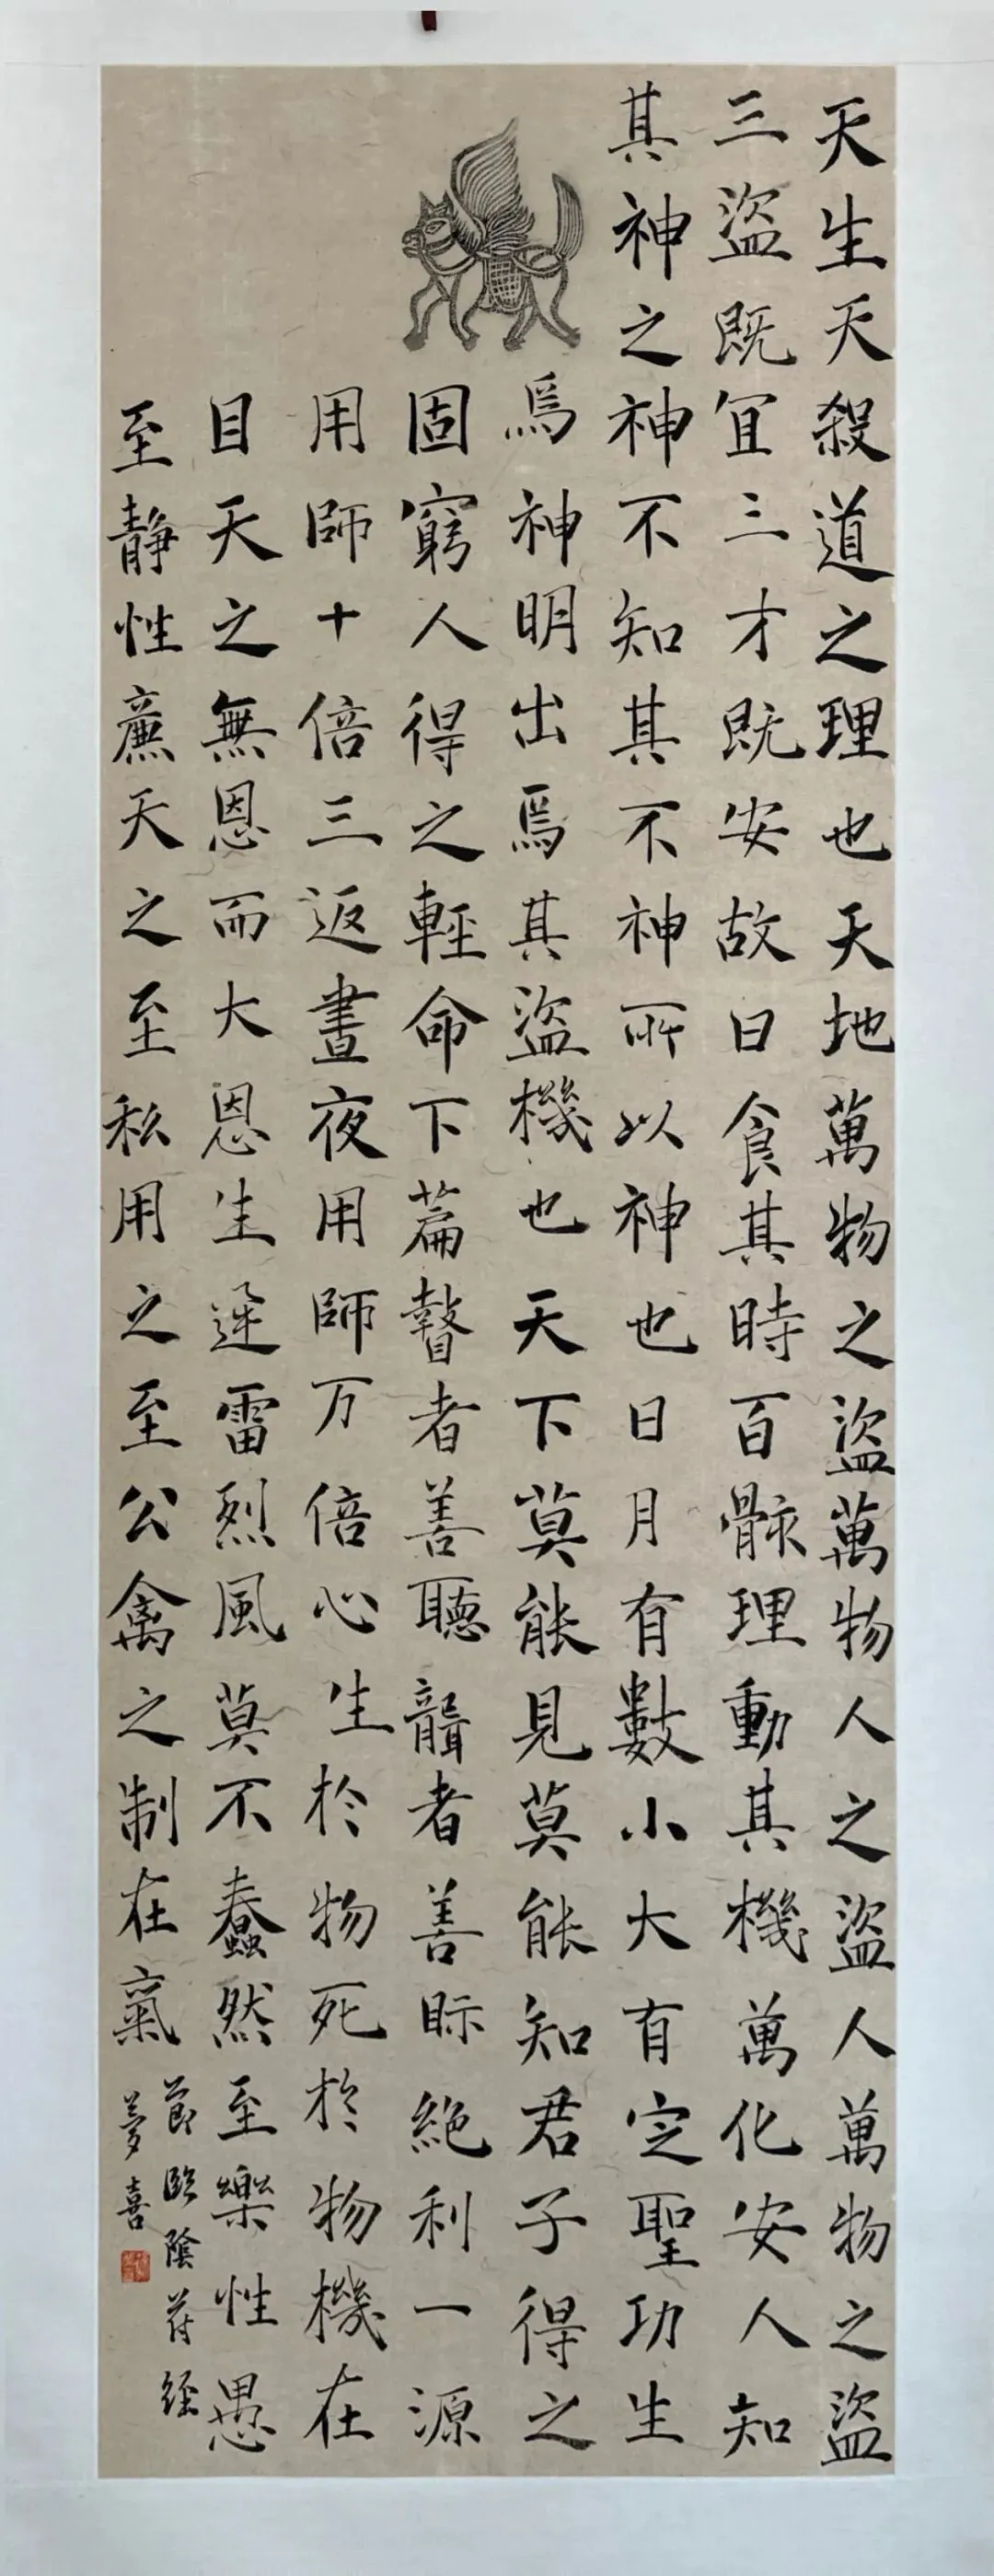 天生天殺道之理也天地萬物之盜萬物人之盜人萬物之盜
三盜既冝三才既安故曰食其時百骸理動其機萬化安人知
其神之神不知其不神所以神也日月有數小大有定聖功生
焉神明出焉其盜機也天下莫能見莫能知君子得之
固窮人得之輕命下篇瞽者善聽聾者善眎絶利一源
用師十倍三返晝夜用師万倍心生於物死於物機在
目天之無恩而大恩生迅雷烈風莫不蠢然至樂性愚
至靜性廉天之至私用之至公禽之制在氣
節臨陰符經
夢喜